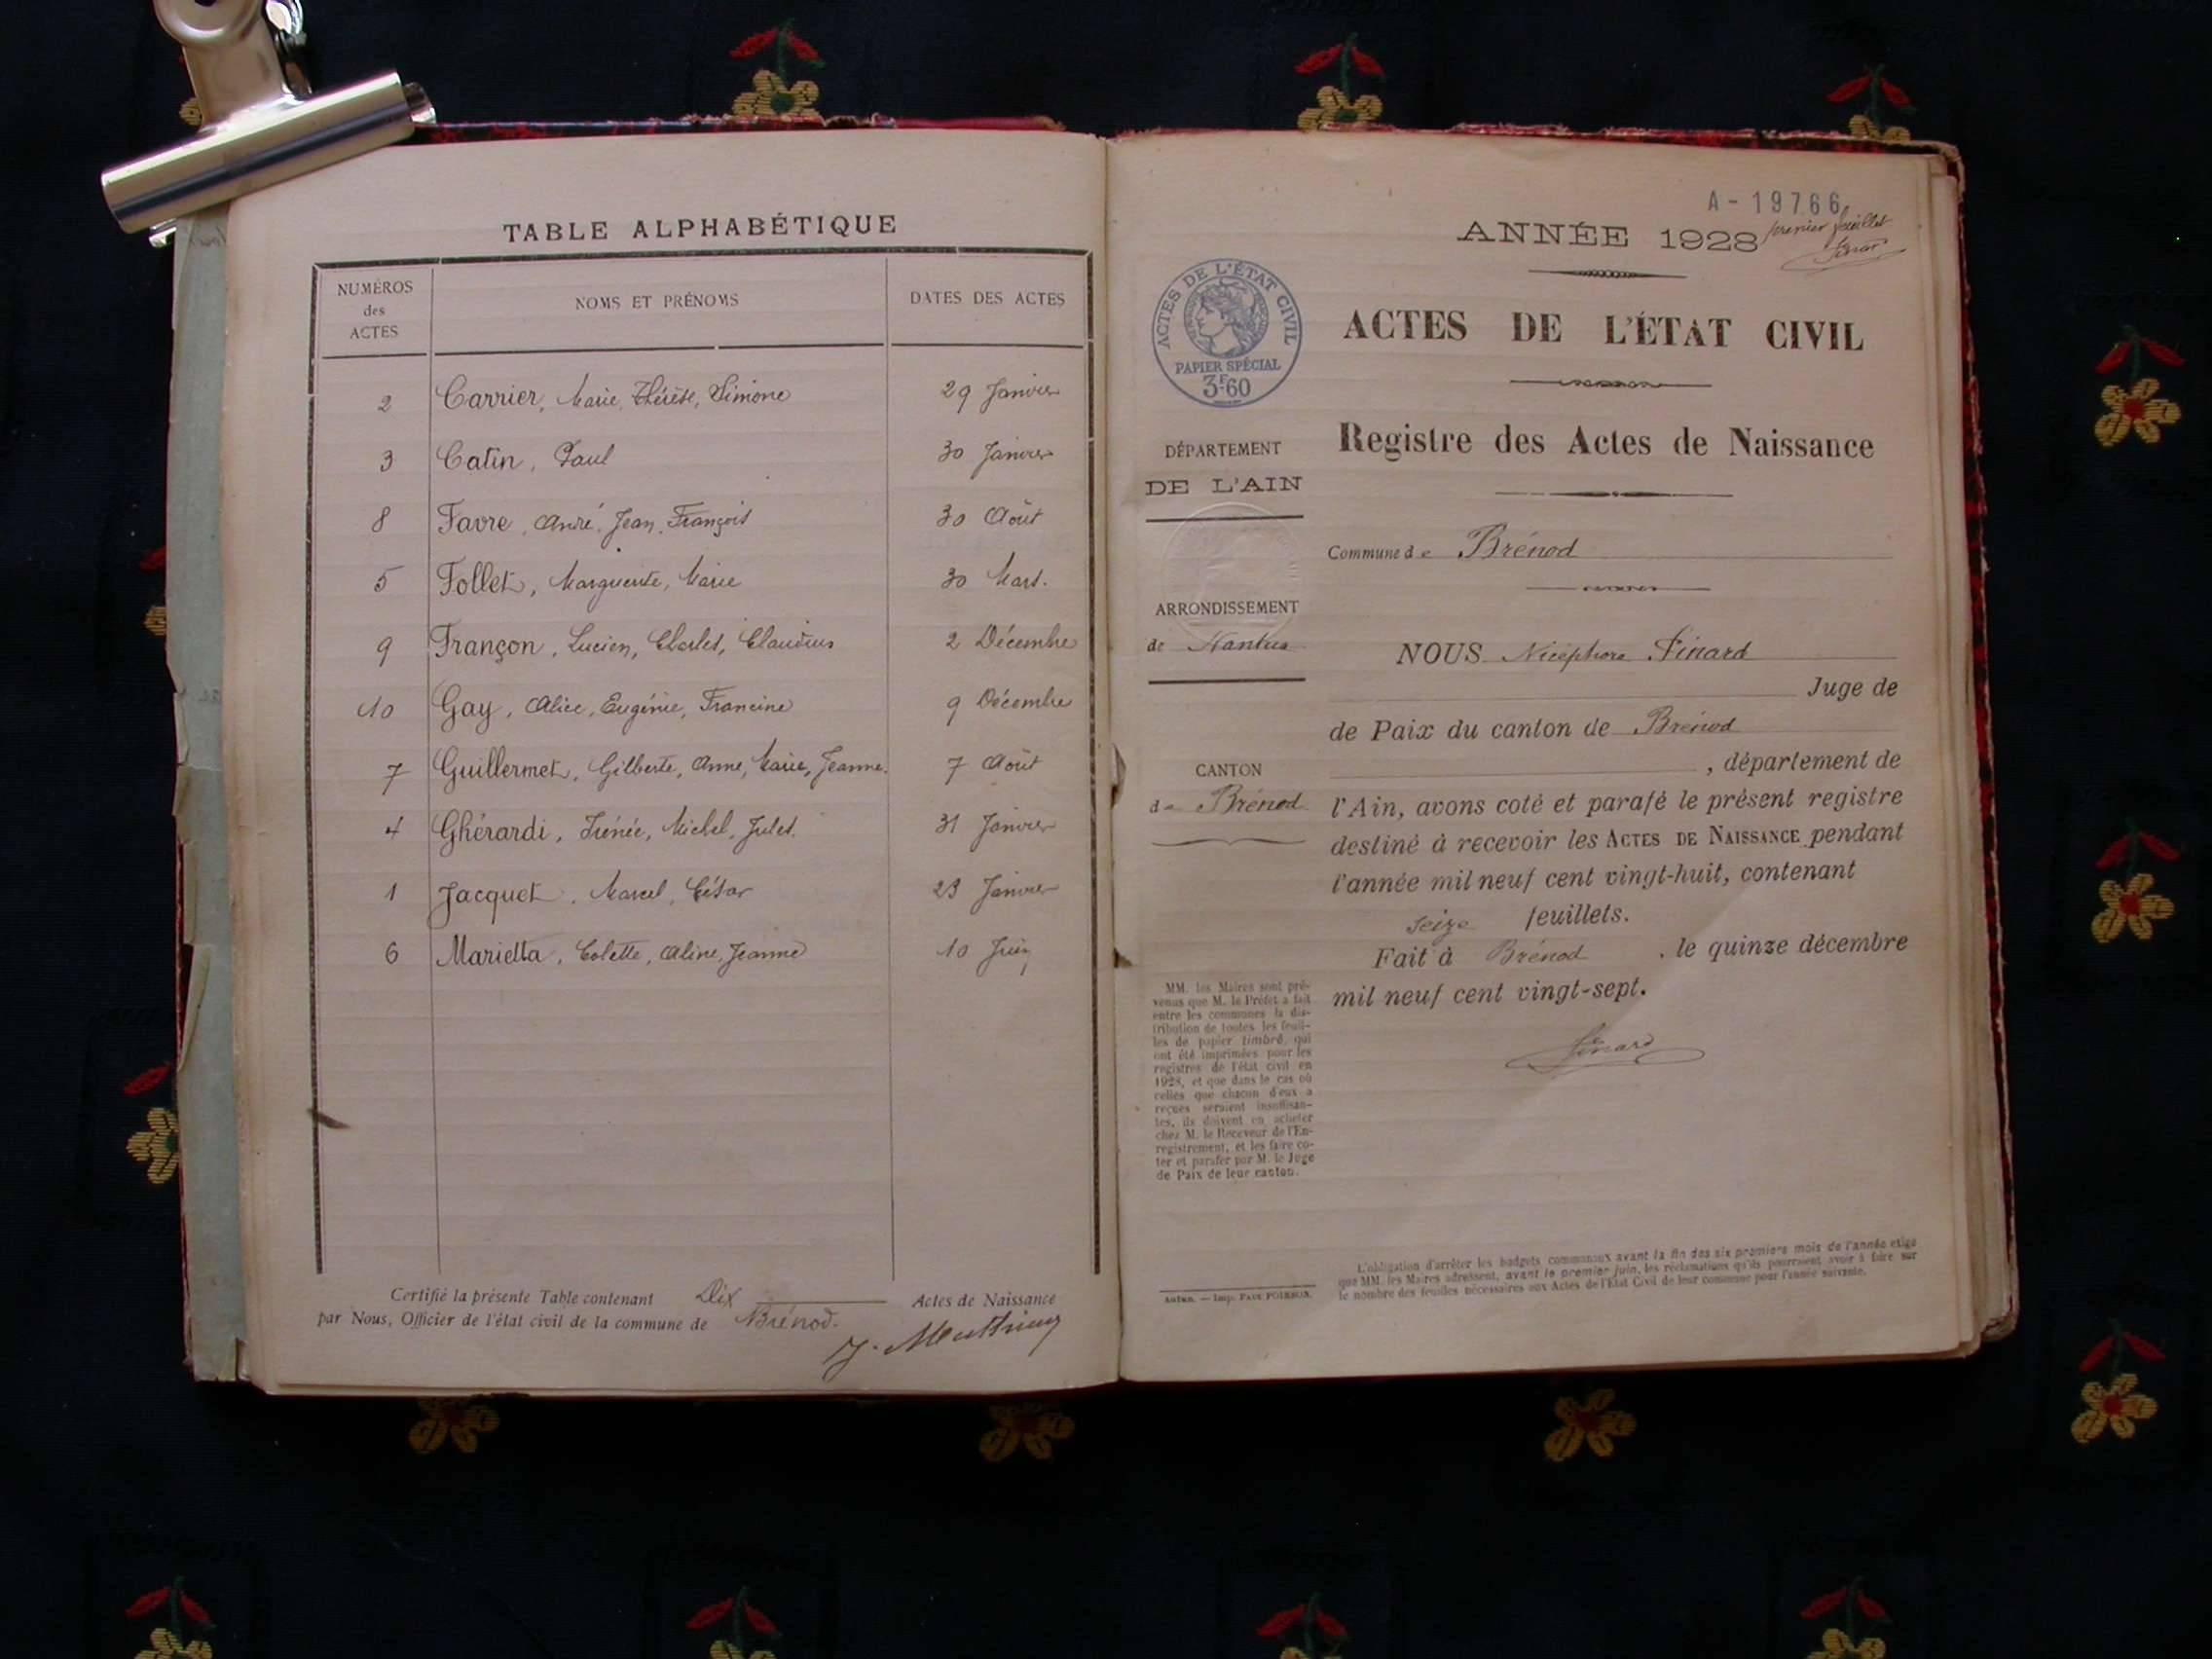 TABLE ALPHABÉTIQUE
NUMÉROS
des
ACTES
NOMS ET PRÉNOMS
DATES DES ACTES
2 Carrier, Marie, Thérèse, Simone 29 Janvier
3 Catin, Paul 30 Janvier
8 Favre, André, Jean, François 30 Août
5 Follet, Marguerite, Marie 30 Mars.
9 Françon, Lucien, Charles, Claudius 2 Décembre
10 Gay, Alice, Eugénie, Francine 9 Décembre
7 Guillermet, Gilberte, Anne, Marie, Jeanne. 7 Août
4 Ghérardi, Irénée, Michel, Jules. 31 Janvier
1 Jacquet, Marcel, César 23 Janvier
6 Marietta, Colette, Aline, Jeanne 10 Juin
Certifié la présente Table contenant Dix Actes de Naissance
par Nous, Officier de l'état civil de la commune de Brénod.
A-19766
ANNÉE 1928
premier feuillet
ACTES DE L'ÉTAT CIVIL
PAPIER SPÉCIAL
3F60
ACTES DE L'ÉTAT CIVIL
Registre des Actes de Naissance
DÉPARTEMENT
DE L'AIN
ARRONDISSEMENT
de Nantua
CANTON
de Brénod
MM. les Maires sont pré-
venus que M. le Préfet a fait
entre les communes la dis-
tribution de toutes les feuil-
les de papier timbré, qui
ont été imprimées pour les
registres de l'état civil en
1928, et que dans le cas où
celles que chacun d'eux a
reçues seraient insuffisan-
tes, ils doivent en acheter
chez M. le Receveur de l'En-
registrement, et les faire co-
ter et parafer par M. le Juge
de Paix de leur canton.
Commune de Brénod
NOUS Nicéphore
Juge de
de Paix du canton de Brénod
, département de
l'Ain, avons coté et parafé le présent registre
destiné à recevoir les ACTES DE NAISSANCE pendant
l'année mil neuf cent vingt-huit, contenant
seize feuillets.
Fait à Brénod, le quinze décembre
mil neuf cent vingt-sept.
L'obligation d'arrêter les budgets communaux avant la fin des six premiers mois de l'année exige
que MM. les Maires adressent, avant le premier juin, les réclamations qu'ils pourraient avoir à faire sur
le nombre des feuilles nécessaires aux Actes de l'État Civil de leur commune pour l'année suivante.
Imp.